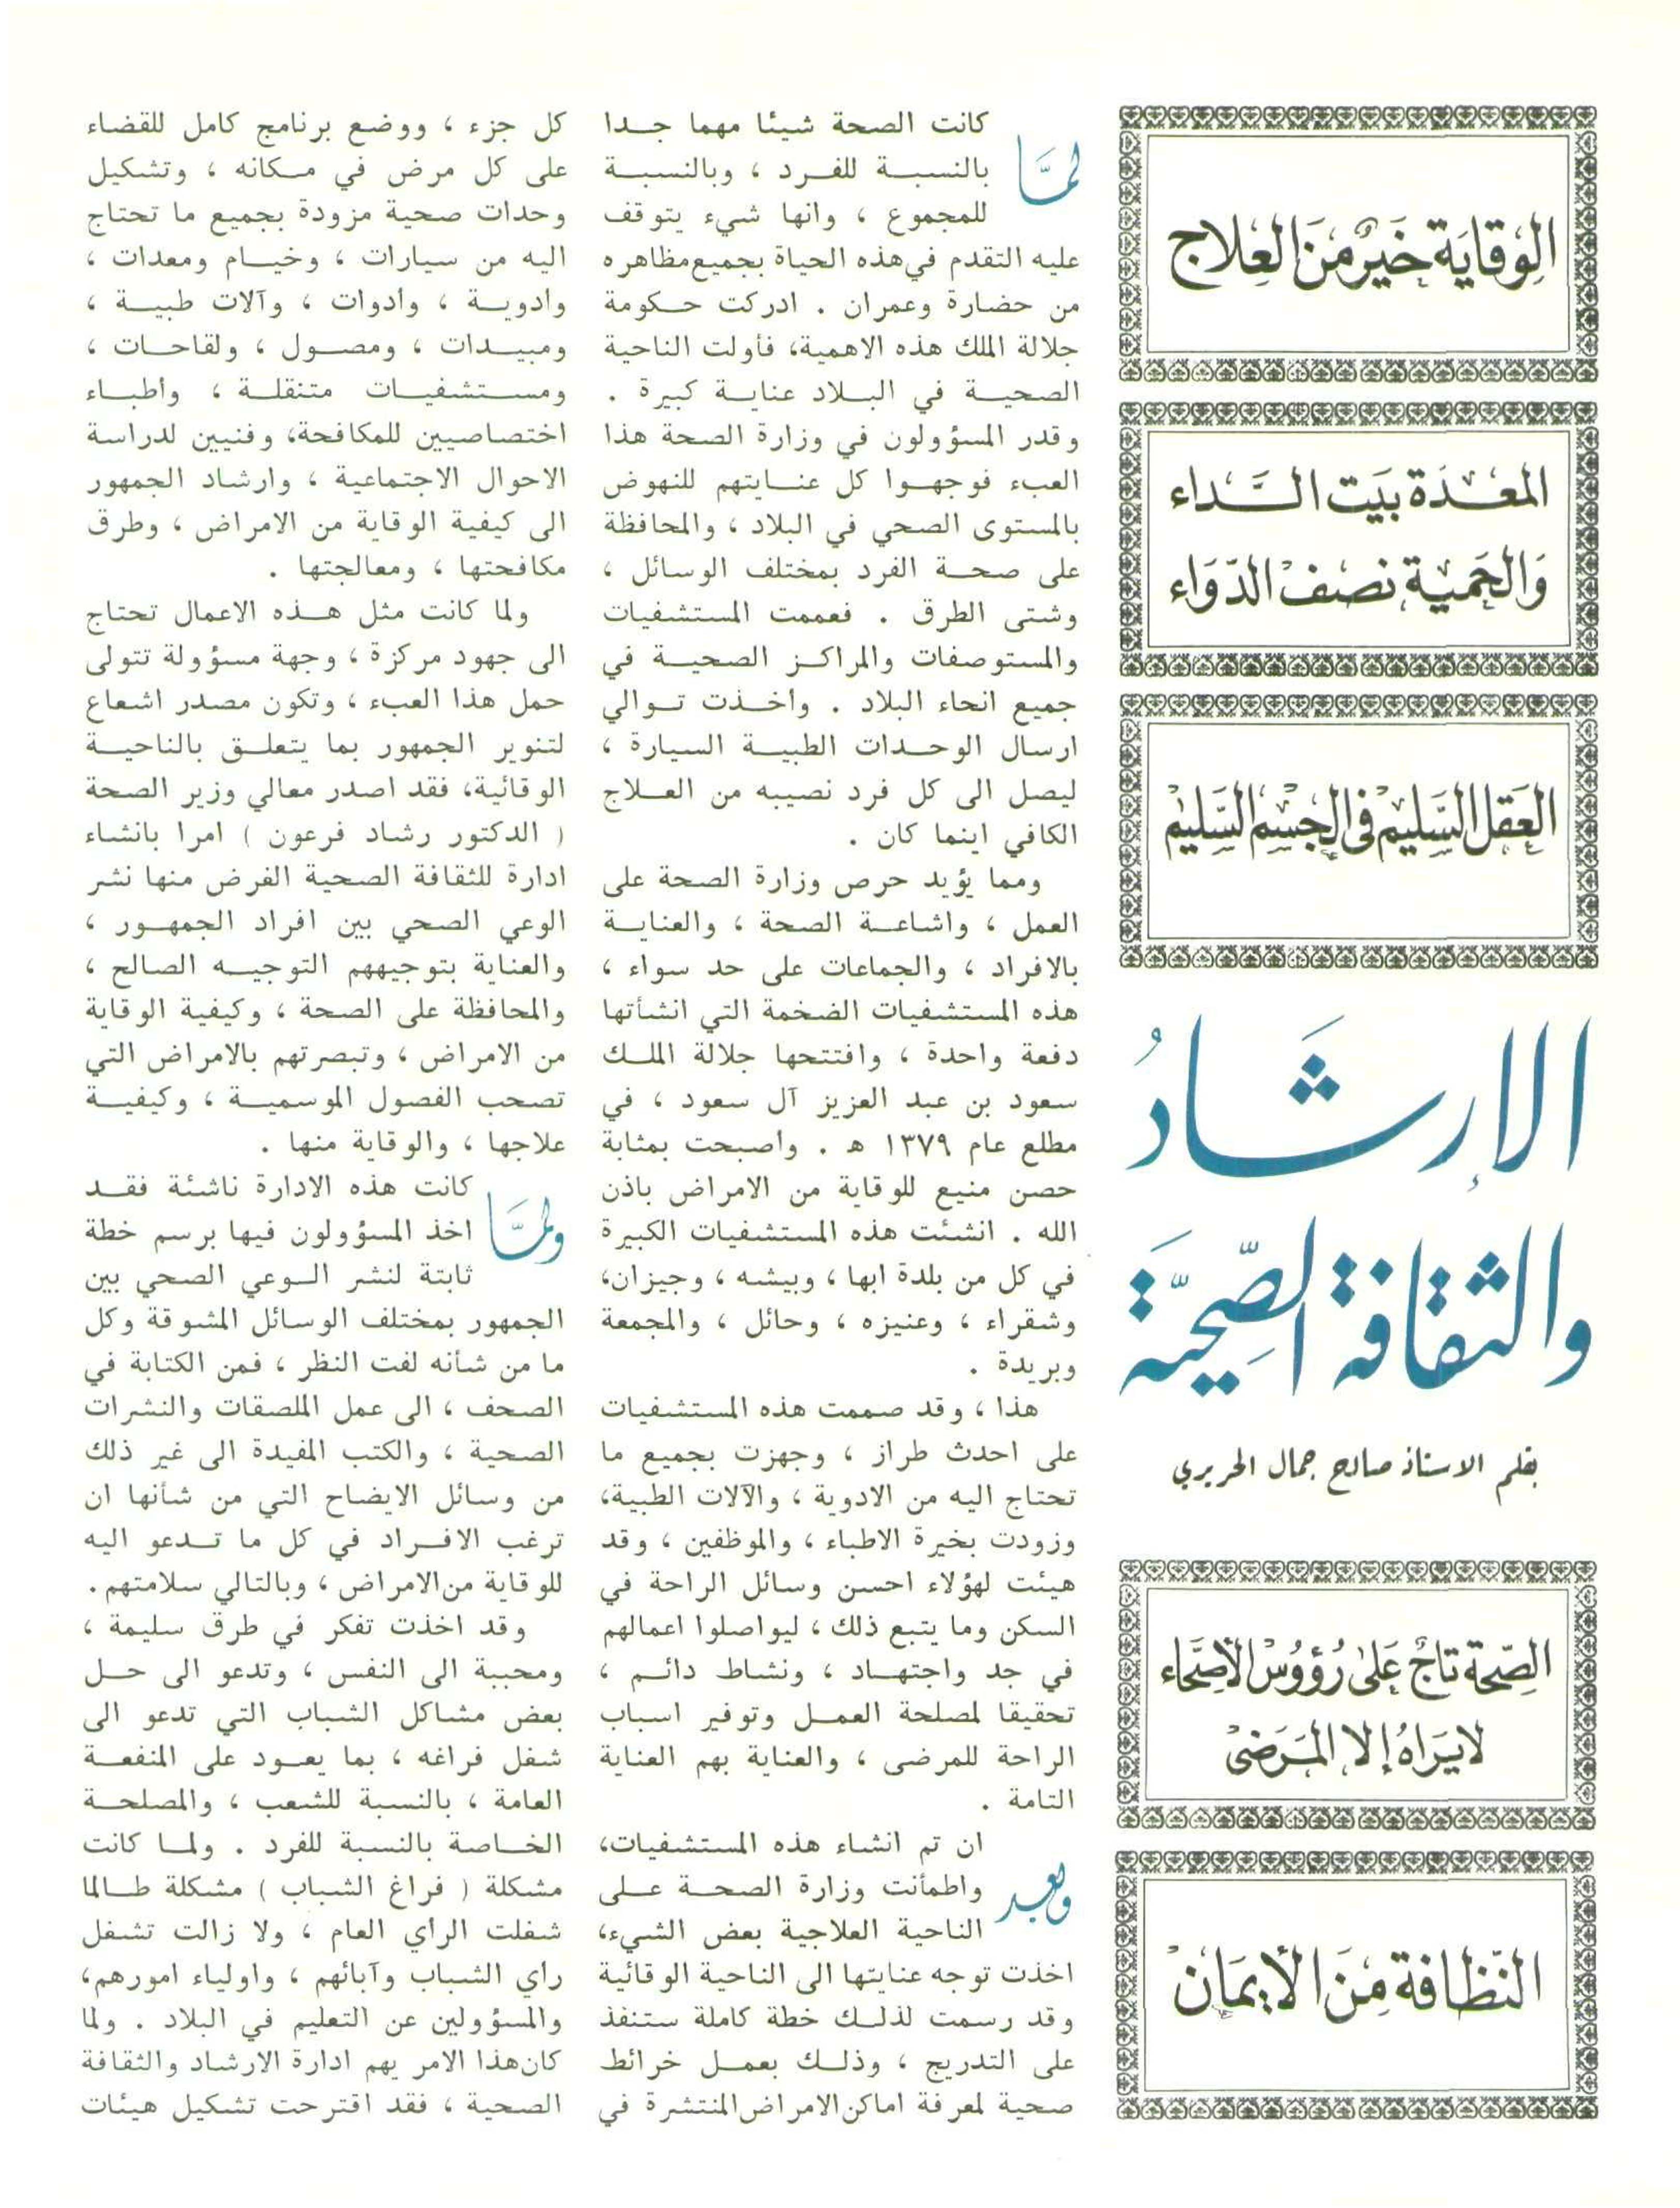 الوقاية خير من العلاج
المعدة بيت الداء
والحمية نصف الدواء
العقل السليم في الجسم السليم
الإرشاد
والثقافة الصحية
بقلم الاستاذ صالح جمال الحريري
الصحة تاج على رؤوس الأصحاء
لا يراه إلا المرضى
النظافة من الأيمان
لما كانت الصحة شيئا مهما جدا
بالنسبة للفرد ، وبالنسبة
للمجموع ، وانها شيء يتوقف
عليه التقدم في هذه الحياة بجميع مظاهره
من حضارة وعمران . ادركت حكومة
جلالة الملك هذه الاهمية، فأولت الناحية
الصحية في البلاد عناية كبيرة .
وقدر المسؤولون في وزارة الصحة هذا
العبء فوجهوا كل عنايتهم للنهوض
بالمستوى الصحي في البلاد ، والمحافظة
على صحة الفرد بمختلف الوسائل ،
وشتى الطرق . فعممت المستشفيات
والمستوصفات والمراكز الصحية في
جميع انحاء البلاد . واخذت توالي
ارسال الوحدات الطبية السيارة ،
ليصل الى كل فرد نصيبه من العلاج
الكافي اينما كان .
ومما يؤيد حرص وزارة الصحة على
العمل ، واشاعة الصحة ، والعناية
بالافراد ، والجماعات على حد سواء ،
هذه المستشفيات الضخمة التي انشأتها
دفعة واحدة ، وافتتحها جلالة الملك
سعود بن عبد العزيز آل سعود ، في
مطلع عام ١٣٧٩ ه . وأصبحت بمثابة
حصن منيع للوقاية من الامراض باذن
الله . انشئت هذه المستشفيات الكبيرة
في كل من بلدة ابها ، وبيشه ، وجيزان،
وشقراء ، وعنيزه ، وحائل ، والمجمعة
وبريدة .
هذا ، وقد صممت هذه المستشفيات
على احدث طراز ، وجهزت بجميع ما
تحتاج اليه من الادوية ، والآلات الطبية،
وزودت بخيرة الاطباء ، والموظفين ، وقد
هيئت لهؤلاء احسن وسائل الراحة في
السكن وما يتبع ذلك ، ليواصلوا اعمالهم
في جد واجتهاد ، ونشاط دائم ،
تحقيقا لمصلحة العمل وتوفير اسباب
الراحة للمرضى ، والعناية بهم العناية
التامة .
وبعد ان تم انشاء هذه المستشفيات،
واطمأنت وزارة الصحة على
الناحية العلاجية بعض الشيء،
اخذت توجه عنايتها الى الناحية الوقائية
وقد رسمت لذلك خطة كاملة ستنفذ
على التدريج ، وذلك بعمل خرائط
صحية لمعرفة اماكن الامراض المنتشرة في
كل جزء ، ووضع برنامج كامل للقضاء
على كل مرض في مكانه ، وتشكيل
وحدات صحية مزودة بجميع ما تحتاج
اليه من سيارات ، وخيام ومعدات ،
وأدوية ، وأدوات ، وآلات طبية ،
ومبيدات ، ومصول ، ولقاحات ،
ومستشفيات متنقلة ، وأطباء
اختصاصيين للمكافحة، وفنيين لدراسة
الاحوال الاجتماعية ، وارشاد الجمهور
الى كيفية الوقاية من الامراض ، وطرق
مكافحتها ، ومعالجتها .
ولما كانت مثل هذه الاعمال تحتاج
الى جهود مركزة ، وجهة مسؤولة تتولى
حمل هذا العبء ، وتكون مصدر اشعاع
لتنوير الجمهور بما يتعلق بالناحية
الوقائية، فقد اصدر معالي وزير الصحة
( الدكتور رشاد فرعون ) امرا بانشاء
ادارة للثقافة الصحية الغرض منها نشر
الوعي الصحي بين افراد الجمهور ،
والعناية بتوجيههم التوجيه الصالح ،
والمحافظة على الصحة ، وكيفية الوقاية
من الامراض ، وتبصرتهم بالامراض التي
تصحب الفصول الموسمية ، وكيفية
علاجها ، والوقاية منها .
ولما كانت هذه الادارة ناشئة فقد
اخذ المسؤولون فيها برسم خطة
ثابتة لنشر الوعي الصحي بين
الجمهور بمختلف الوسائل المشوقة وكل
ما من شأنه لفت النظر ، فمن الكتابة في
الصحف ، الى عمل الملصقات والنشرات
الصحية ، والكتب المفيدة الى غير ذلك
من وسائل الايضاح التي من شأنها ان
ترغب الافراد في كل ما تدعو اليه
للوقاية من الامراض ، وبالتالي سلامتهم.
وقد اخذت تفكر في طرق سليمة ،
ومحببة الى النفس ، وتدعو الى حل
بعض مشاكل الشباب التي تدعو الى
شغل فراغه ، بما يعود على المنفعة
العامة ، بالنسبة للشعب ، والمصلحة
الخاصة بالنسبة للفرد . ولما كانت
مشكلة ( فراغ الشباب ) مشكلة طالما
شغلت الرأي العام ، ولا زالت تشغل
رأي الشباب وآبائهم ، واولياء امورهم،
والمسؤولين عن التعليم في البلاد . ولما
كان هذا الامر يهم ادارة الارشاد والثقافة
الصحية ، فقد اقترحت تشكيل هيئات